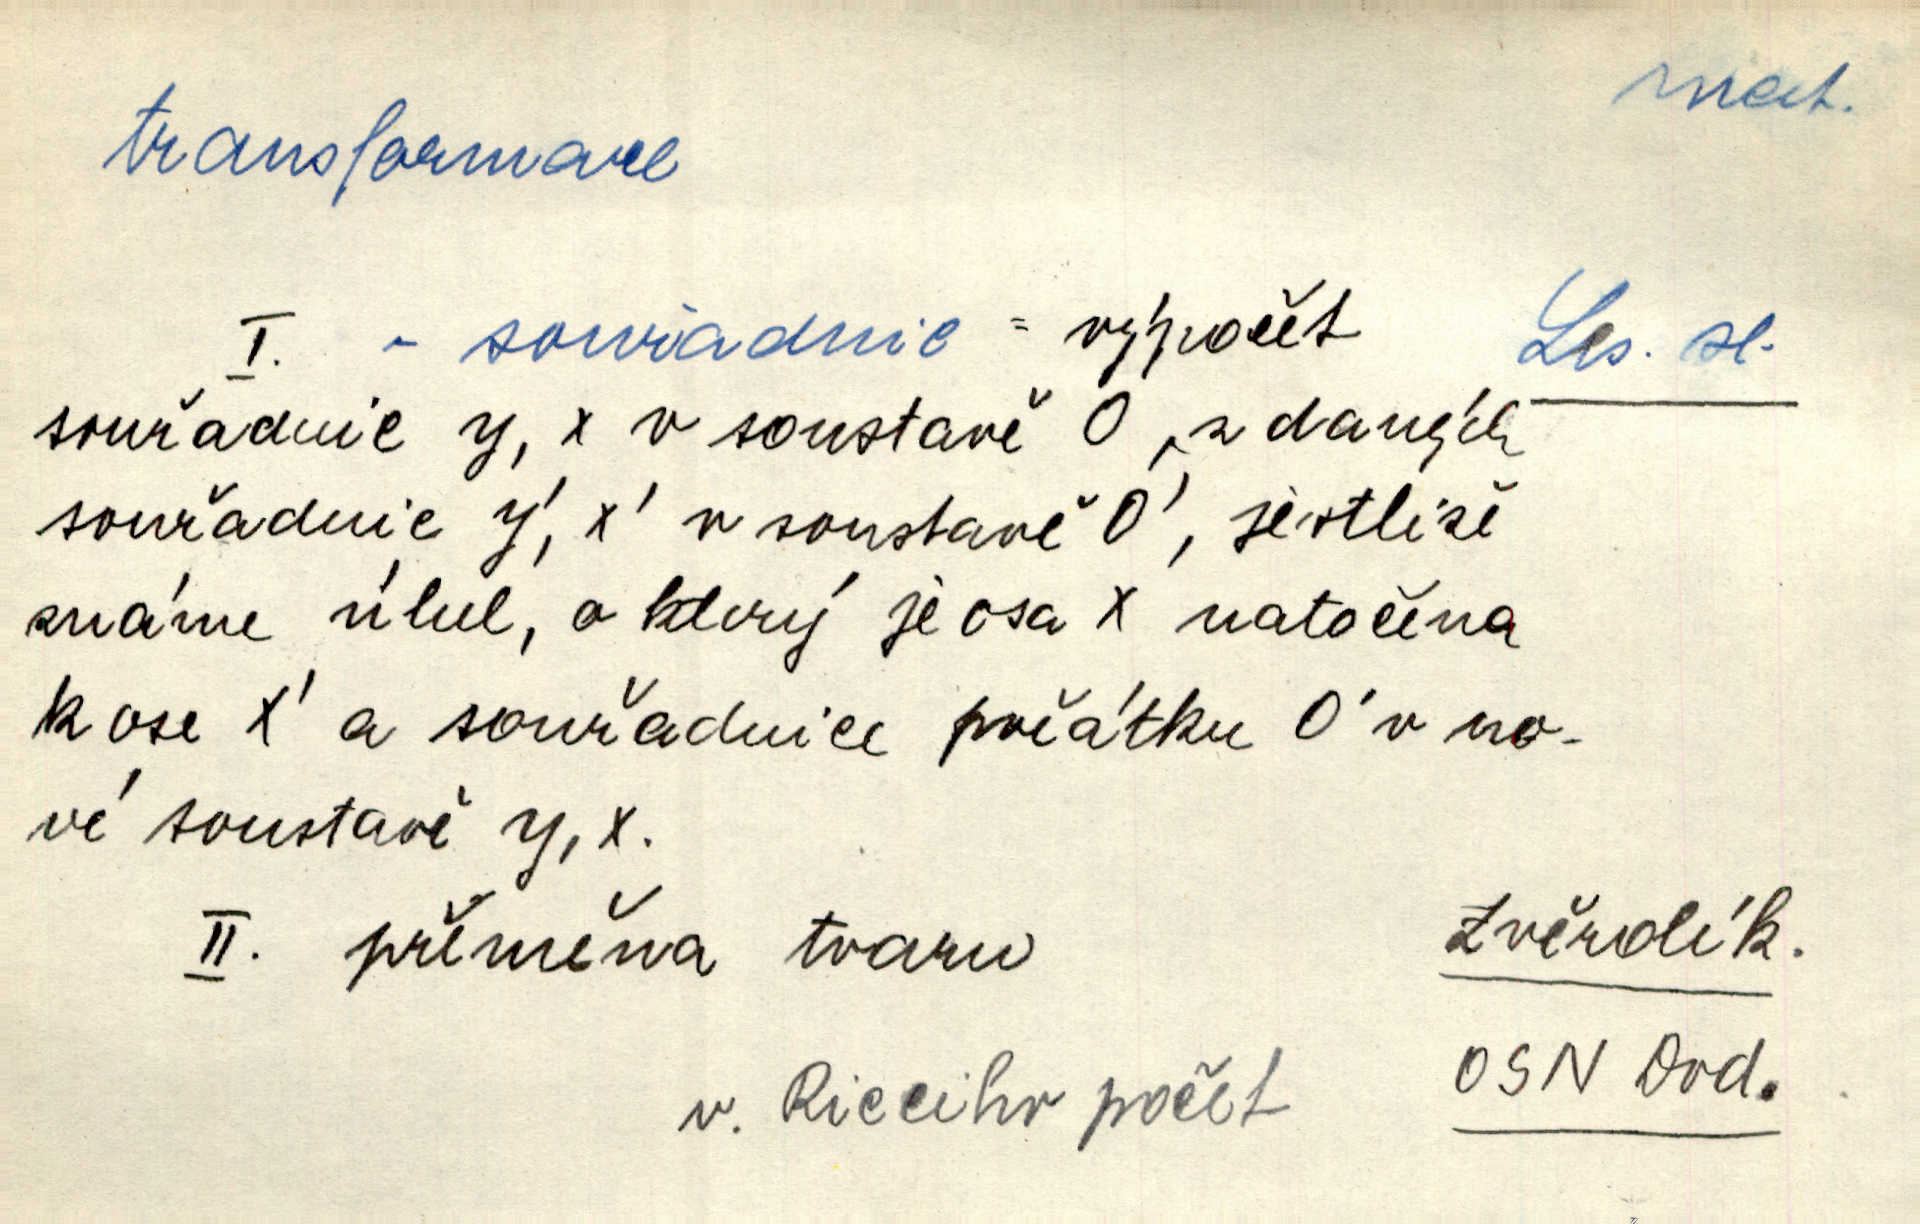 mat.
transformace
I. - souřadnic = výpočet Les. sl.
souřadnic y, x v soustavě O, z daných
souřadnic y', x' v soustavě O', jestliže
známe úhel, o který je osa X natočena
k ose X' a souřadnice počátku O' v no-
vé soustavě y, x.
II. přeměna tvaru Zvěrolék.
OSN Dod.
v. Ricciho počet